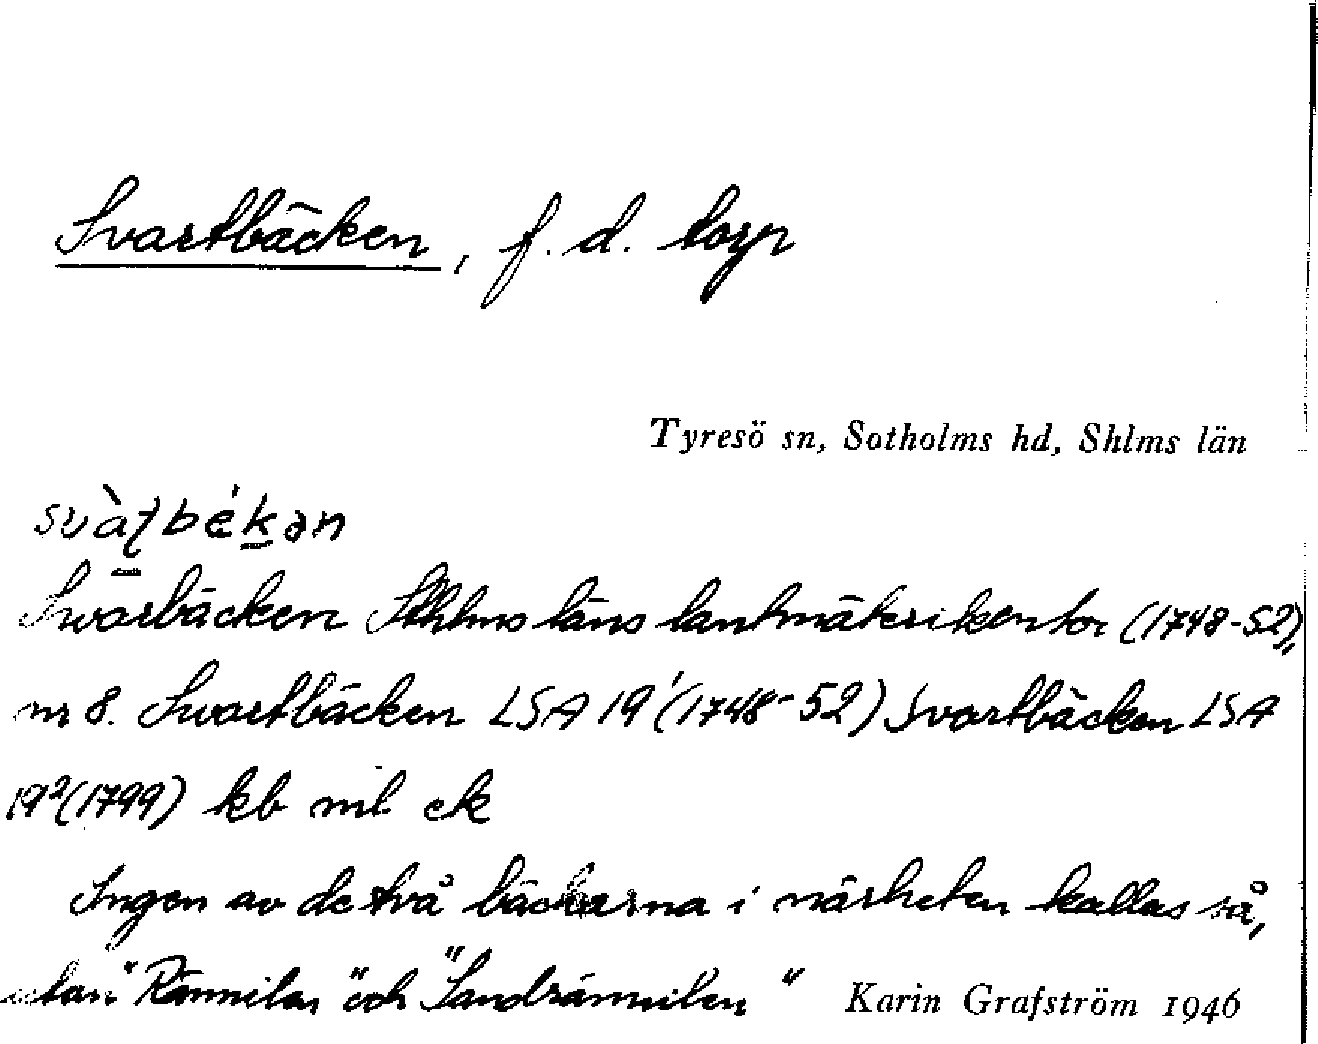 Svartbäcken, f. d. torp
Tyresö sn, Sotholms hd, Shlms län
svàʈbékən
Swarbäcken Sthlms läns lantmäterikontor (1748-52),
nr 8. Swartbäcken LSA 19¹(1748-52) Svartbäcken LSA
19²(1799) kb ml ek
Ingen av de två bäckarna i närheten kallas så,
utan "Rännilen" och "Sandrännilen" Karin Grafström 1946